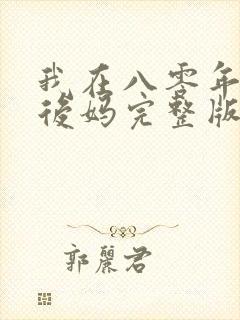 我在八零年
後妈完整版
郭麗君